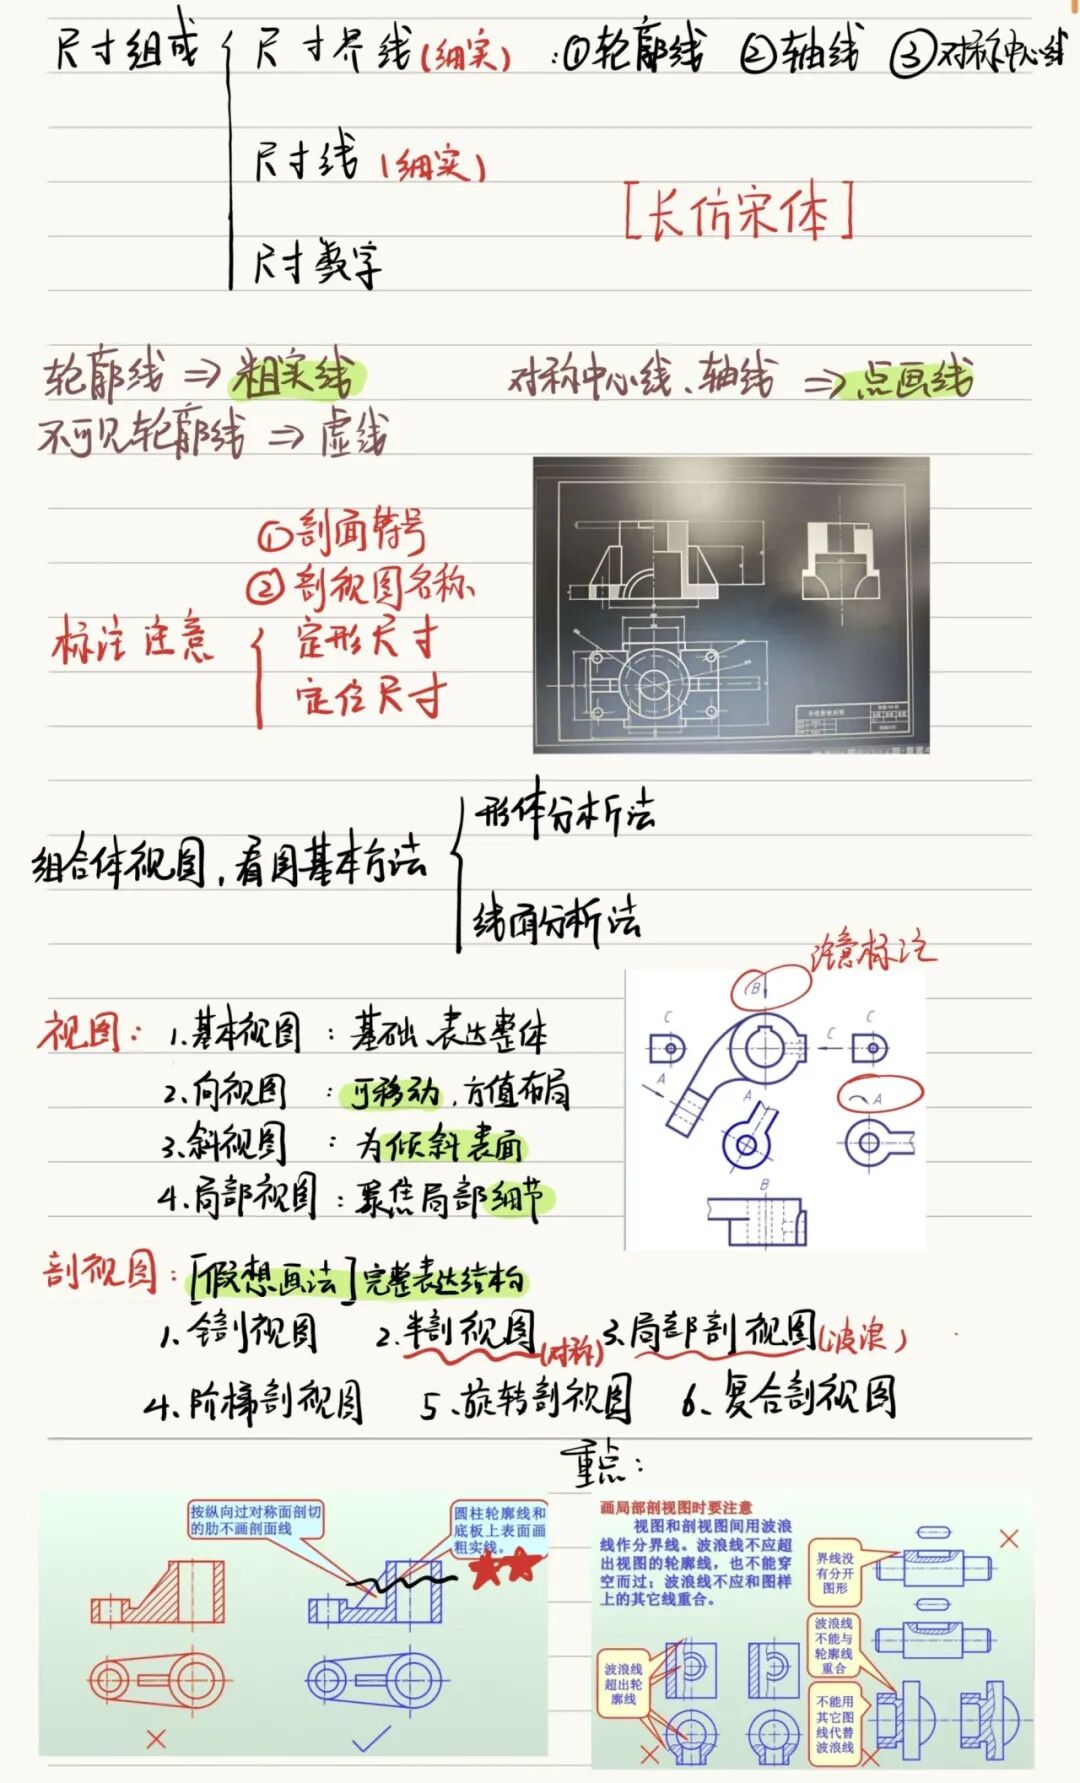 尺寸组成 { 尺寸界线(细实) :①轮廓线 ②轴线 ③对称中心线
尺寸线(细实)
[长仿宋体]
尺寸数字
轮廓线 ⇒ 粗实线 对称中心线、轴线 ⇒ 点画线
不可见轮廓线 ⇒ 虚线
①剖面符号
②剖视图名称
标注注意 { 定形尺寸
定位尺寸
组合体视图,看图基本方法 { 形体分析法
线面分析法
注意标注
视图: 1.基本视图 : 基础、表达整体
2.向视图 : 可移动,方值布局
3.斜视图 : 为倾斜表面
4.局部视图 : 聚焦局部细节
B
C
C
C
A
A
A
B
剖视图:[假想画法]完整表达结构
1.全剖视图 2.半剖视图(对称) 3.局部剖视图(波浪)
4、阶梯剖视图 5、旋转剖视图 6、复合剖视图
重点:
按纵向过对称面剖切
的肋不画剖面线
圆柱轮廓线和
底板上表面画
粗实线。
画局部剖视图时要注意
视图和剖视图间用波浪
线作分界线。波浪线不应超
出视图的轮廓线,也不能穿
空而过;波浪线不应和图样
上的其它线重合。
界线没
有分开
图形
波浪线
不能与
轮廓线
重合
波浪线
超出轮
廓线
不能用
其它图
线代替
波浪线